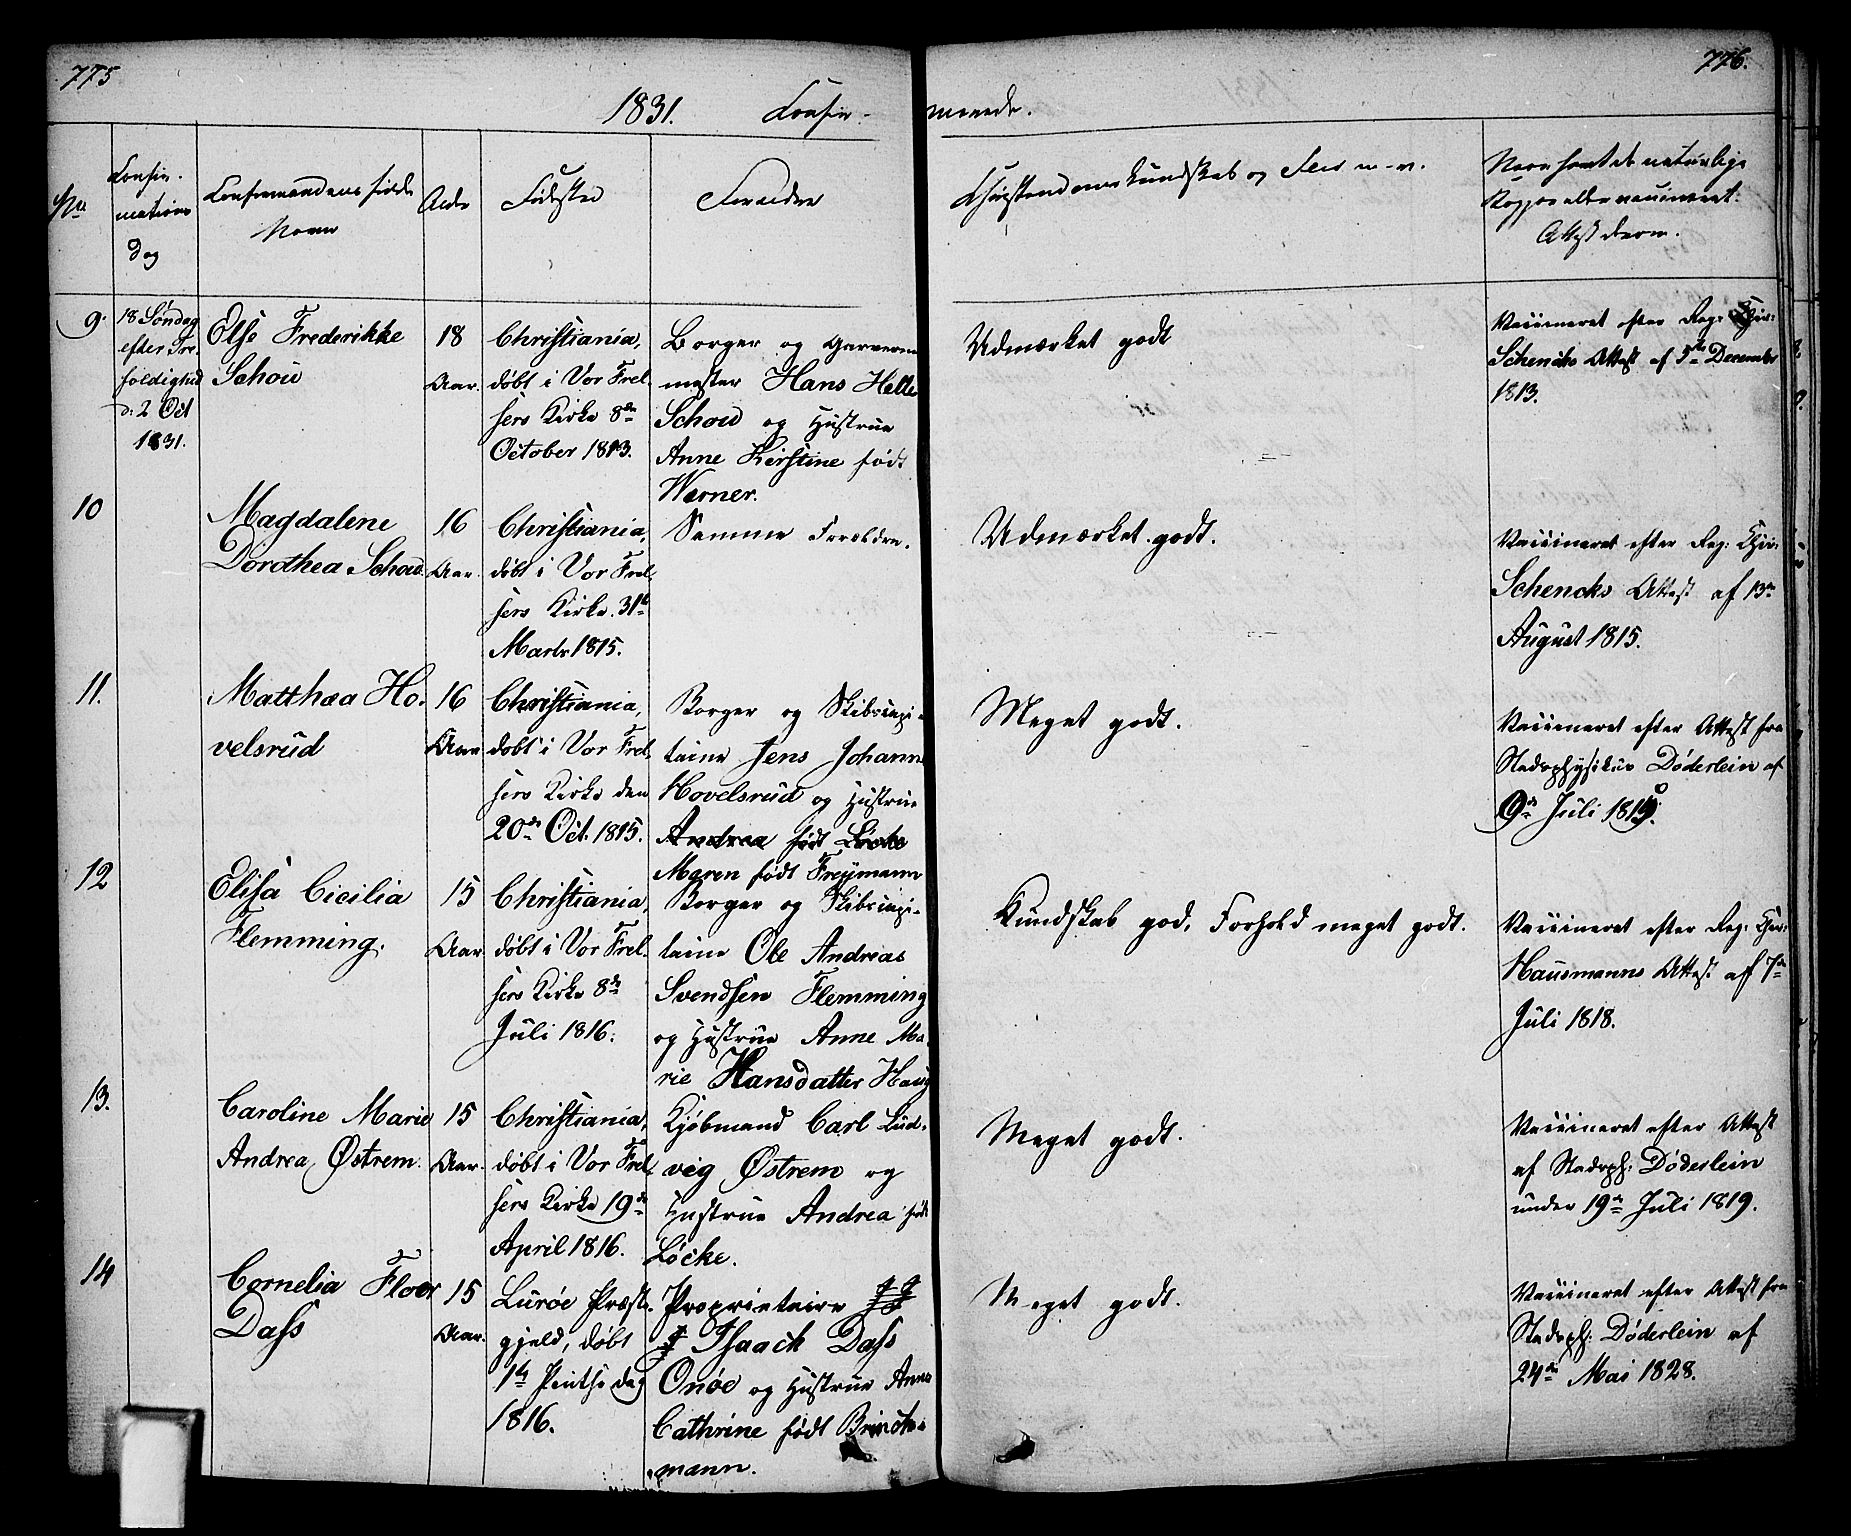 775
776.
1831. Confir-
merede.
No
Confir-
mations
Dag
Confirmandens fulde
Navn
Alder
Fødested
Forældre
Christendomskundskab og Flid m. v.
Navn samt de naturlige
Kopper eller vaccineret.
Attest derom.
9.
18 Søndag
efter Tre-
foldighed
d: 2 Oct
1831.
Else Frederikke
Schou
18
Aar.
Christiania,
døbt i Vor Frel-
sers Kirke 8de
October 1813.
Borger og Garver-
mester Hans Helle
Schou og Hustrue
Anne Kirstine født
Werner.
Udmærket godt
Vaccineret efter Reg: Chir:
Schencks Attest af 5te December
1813.
10
Magdalene
Dorothea Schou.
16
Aar.
Christiania,
døbt i Vor Frel-
sers Kirke 31te
Marts 1815.
Samme Forældre.
Udmærket godt.
Vaccineret efter Reg: Chir:
Schencks Attest af 13de
August 1815.
11.
Matthæa Ho-
velsrud
16
Aar
Christiania,
døbt i Vor Frel-
sers Kirke den
20de Oct. 1815.
Borger og Skibscapi-
taine Jens Johann
Hovelsrud og Hustrue
Andrea født Löcke
Maren født Freymann
Meget godt.
Vaccineret efter Attest fra
Stadsphysikus Døderlein af
9de Juli 1819.
12
Elisa Cicilia
Flemming.
15
Aar
Christiania,
døbt i Vor Frel-
sers Kirke 8de
Juli 1816.
Borger og Skibscapi-
taine Ole Andreas
Svendsen Flemming
og Hustrue Anne Ma-
rie Hansdatter Haug
Kundskab god, Forhold meget godt.
Vaccineret efter Reg: Chir:
Hausmanns Attest af 7de
Juli 1818.
13.
Caroline Marie
Andrea Østrem.
15
Aar.
Christiania,
døbt i Vor Frel-
sers Kirke 19de
April 1816.
Kjøbmand Carl Lud-
vig Østrem og
Hustrue Andrea født
Löcke.
Meget godt.
Vaccineret efter Attest
af Stadsph: Døderlein
under 19de Juli 1819.
14
Cornelia Floor
Dass
15
Aar.
Lurøe Præste-
gjeld, døbt
1te Pintsedag
1816.
Proprietaire
Isaack Dass
Onøe og Hustrue Anna
Cathrine født Brinck-
mann.
Meget godt.
Vaccineret efter Attest fra
Stadsph: Døderlein af
24de Mai 1828.